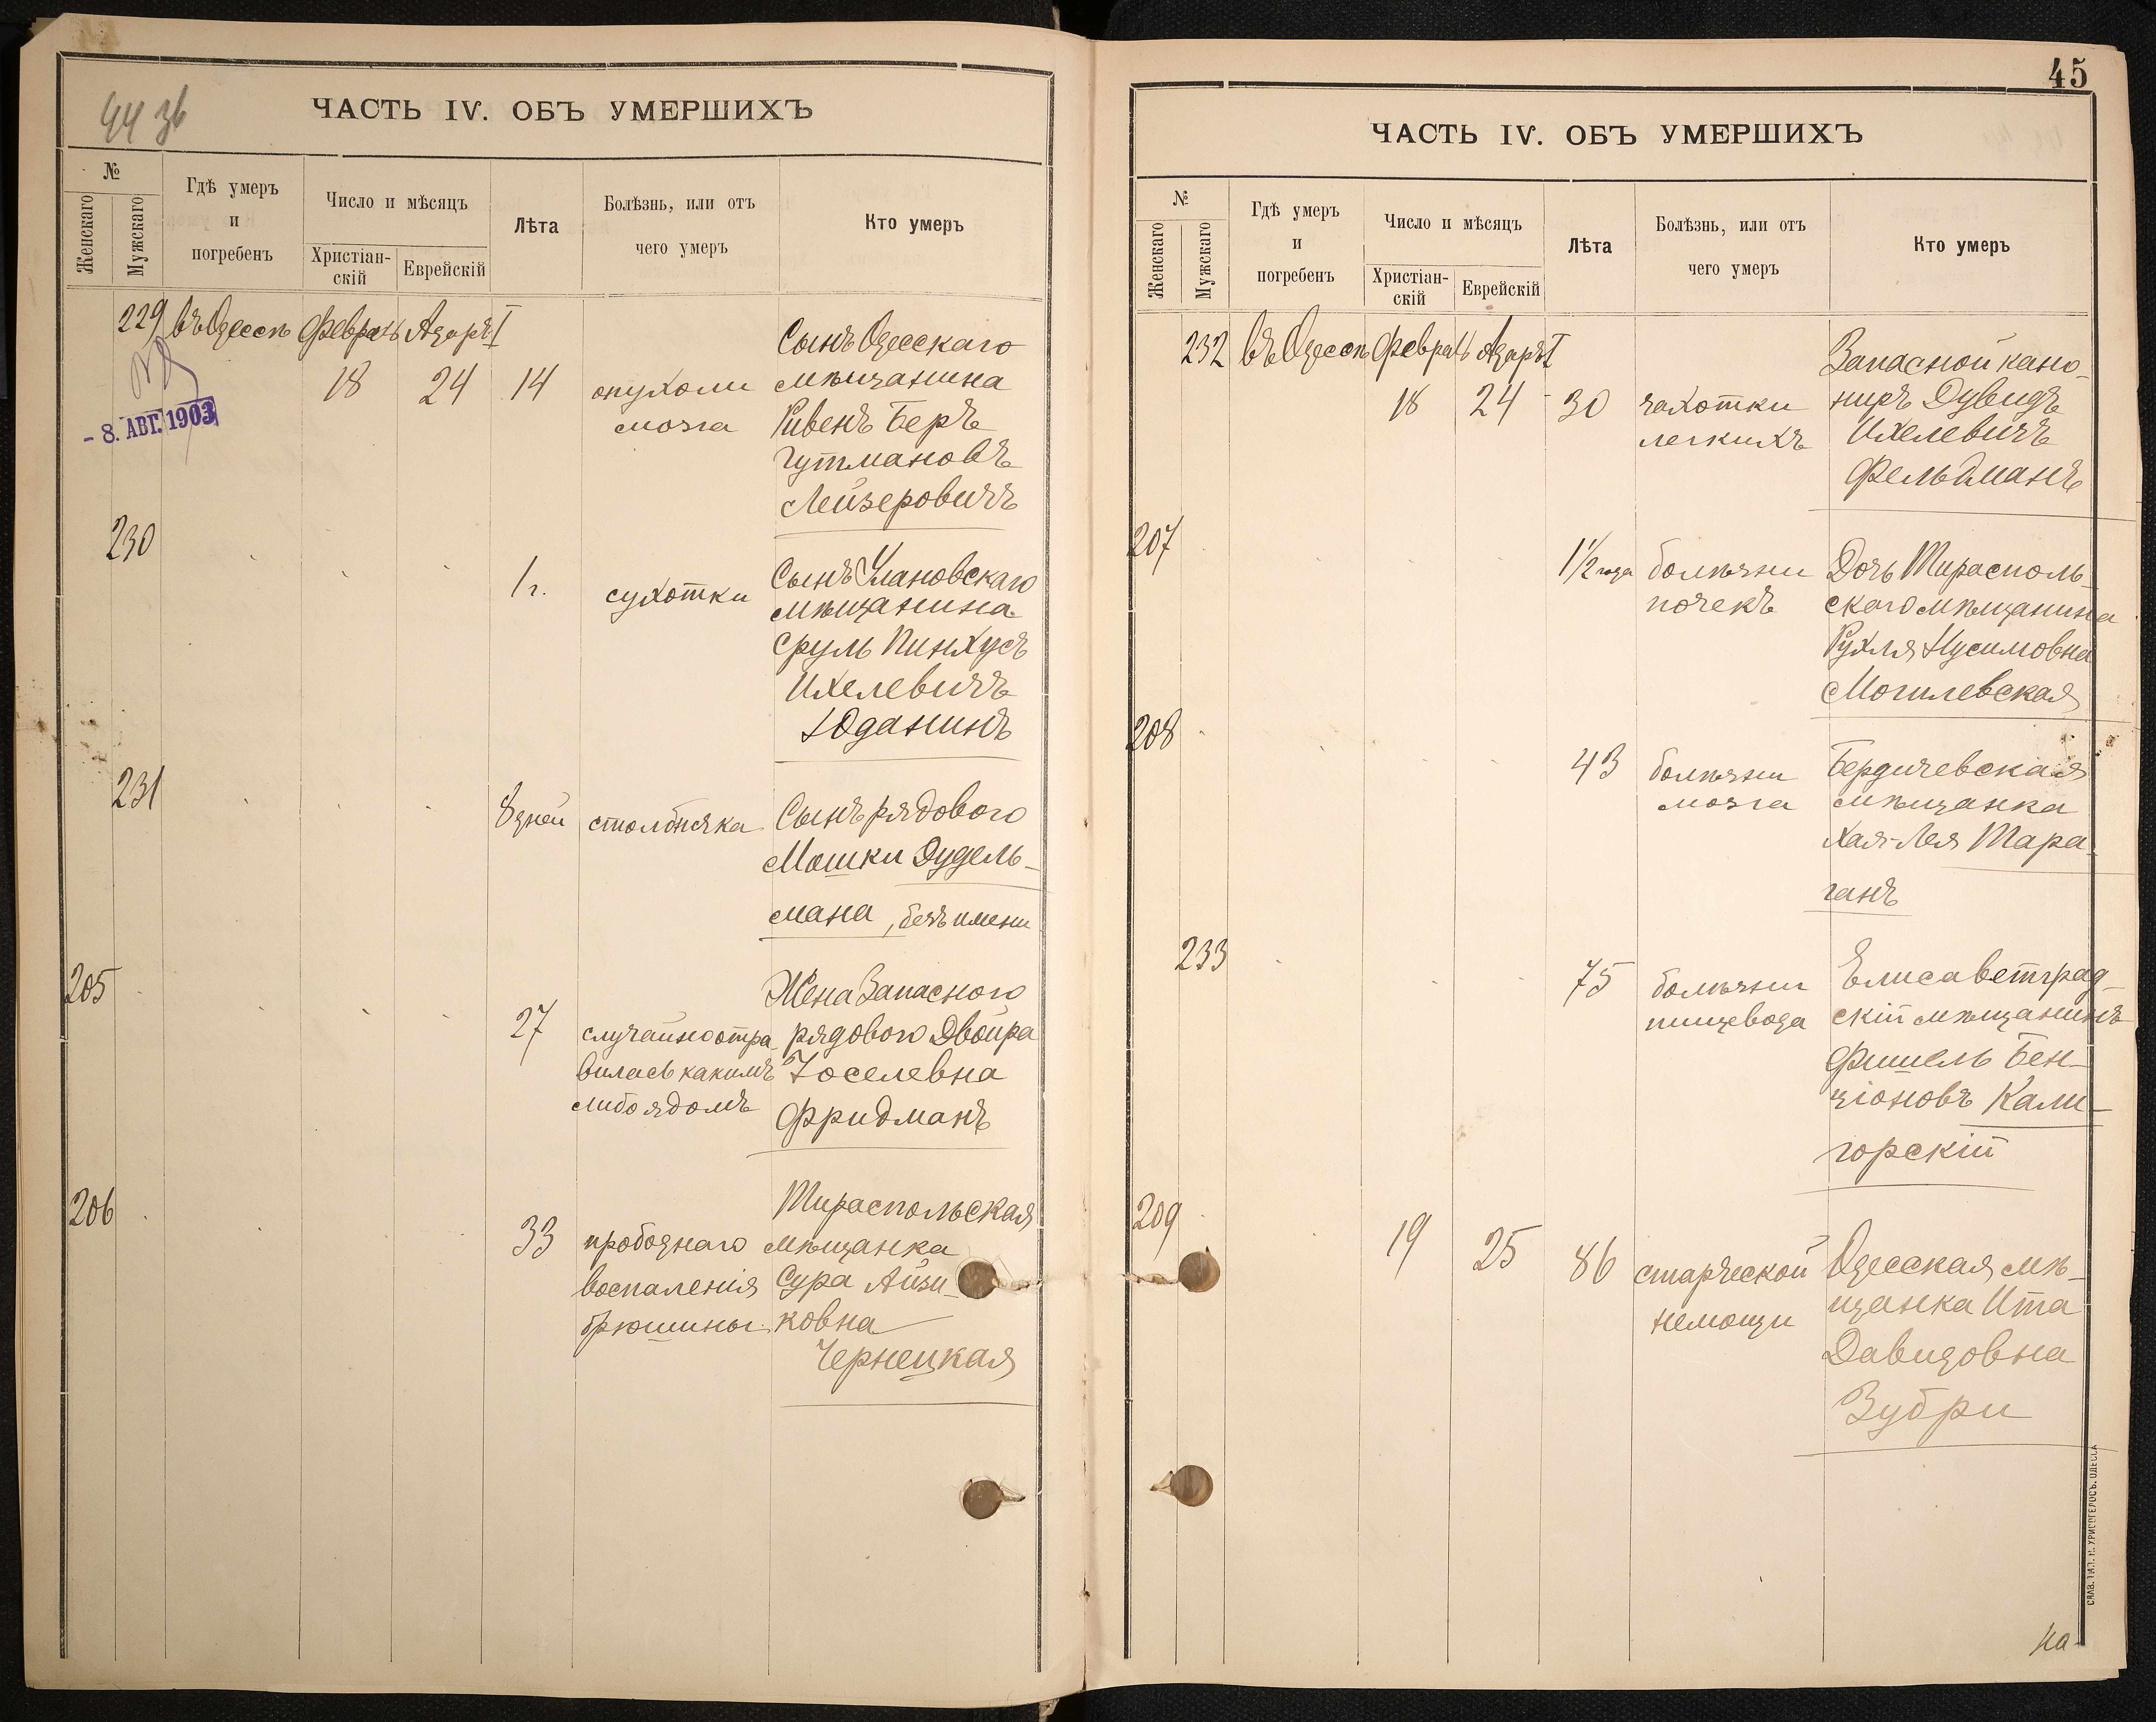 44 зв
ЧАСТЬ IV. ОБЪ УМЕРШИХЪ
№
Женскаго
Мужскаго
Гдѣ умеръ
и
погребенъ
Число и мѣсяцъ
Христіан-
скій
Еврейскій
Лѣта
Болѣзнь, или отъ
чего умеръ
Кто умеръ
229 въ Одессѣ Февраль Адаръ I
18 24 14 опухоли
мозга
Сынъ Одесскаго
мѣщанина
Рувенъ Беръ
Гутмановъ
Лейзеровичъ
- 8. АВГ. 1903
230
1 г. сухотки
Сынъ Улановскаго
мѣщанина
Сруль Пинхусъ
Ихелевичъ
Юданинъ
231
8 дней столбняка
Сынъ рядового
Мошки Дудель-
мана, безъ имени
205
27 случайно отра-
вилась какимъ
либо ядомъ
Жена Запасного
рядового Двойра
Іоселевна
Фридманъ
206
33 прободнаго
воспаленія
брюшины
Тираспольская
мѣщанка
Сура Айзи-
ковна
Чернецкая
45
ЧАСТЬ IV. ОБЪ УМЕРШИХЪ
№
Женскаго
Мужскаго
Гдѣ умеръ
и
погребенъ
Число и мѣсяцъ
Христіан-
скій
Еврейскій
Лѣта
Болѣзнь, или отъ
чего умеръ
Кто умеръ
232 въ Одессѣ Февраль Адаръ I
18 24 30 чахотки
легкихъ
Запасной кано-
ниръ Дувидъ
Ихелевичъ
Фельдманъ
207
1½ года болѣзни
почекъ
Дочь Тирасполь-
скаго мѣщанина
Рухля Нусимовна
Могилевская
208
43 болѣзни
мозга
Бердичевская
мѣщанка
Хая-Лея Тара-
ганъ
233
75 болѣзни
пищевода
Елисаветград-
скій мѣщанинъ
Фишель Бен-
ціоновъ Кали-
горскій
209
19 25 86 старческой
немощи
Одесская мѣ-
щанка Ита
Давидовна
Зубри
На-